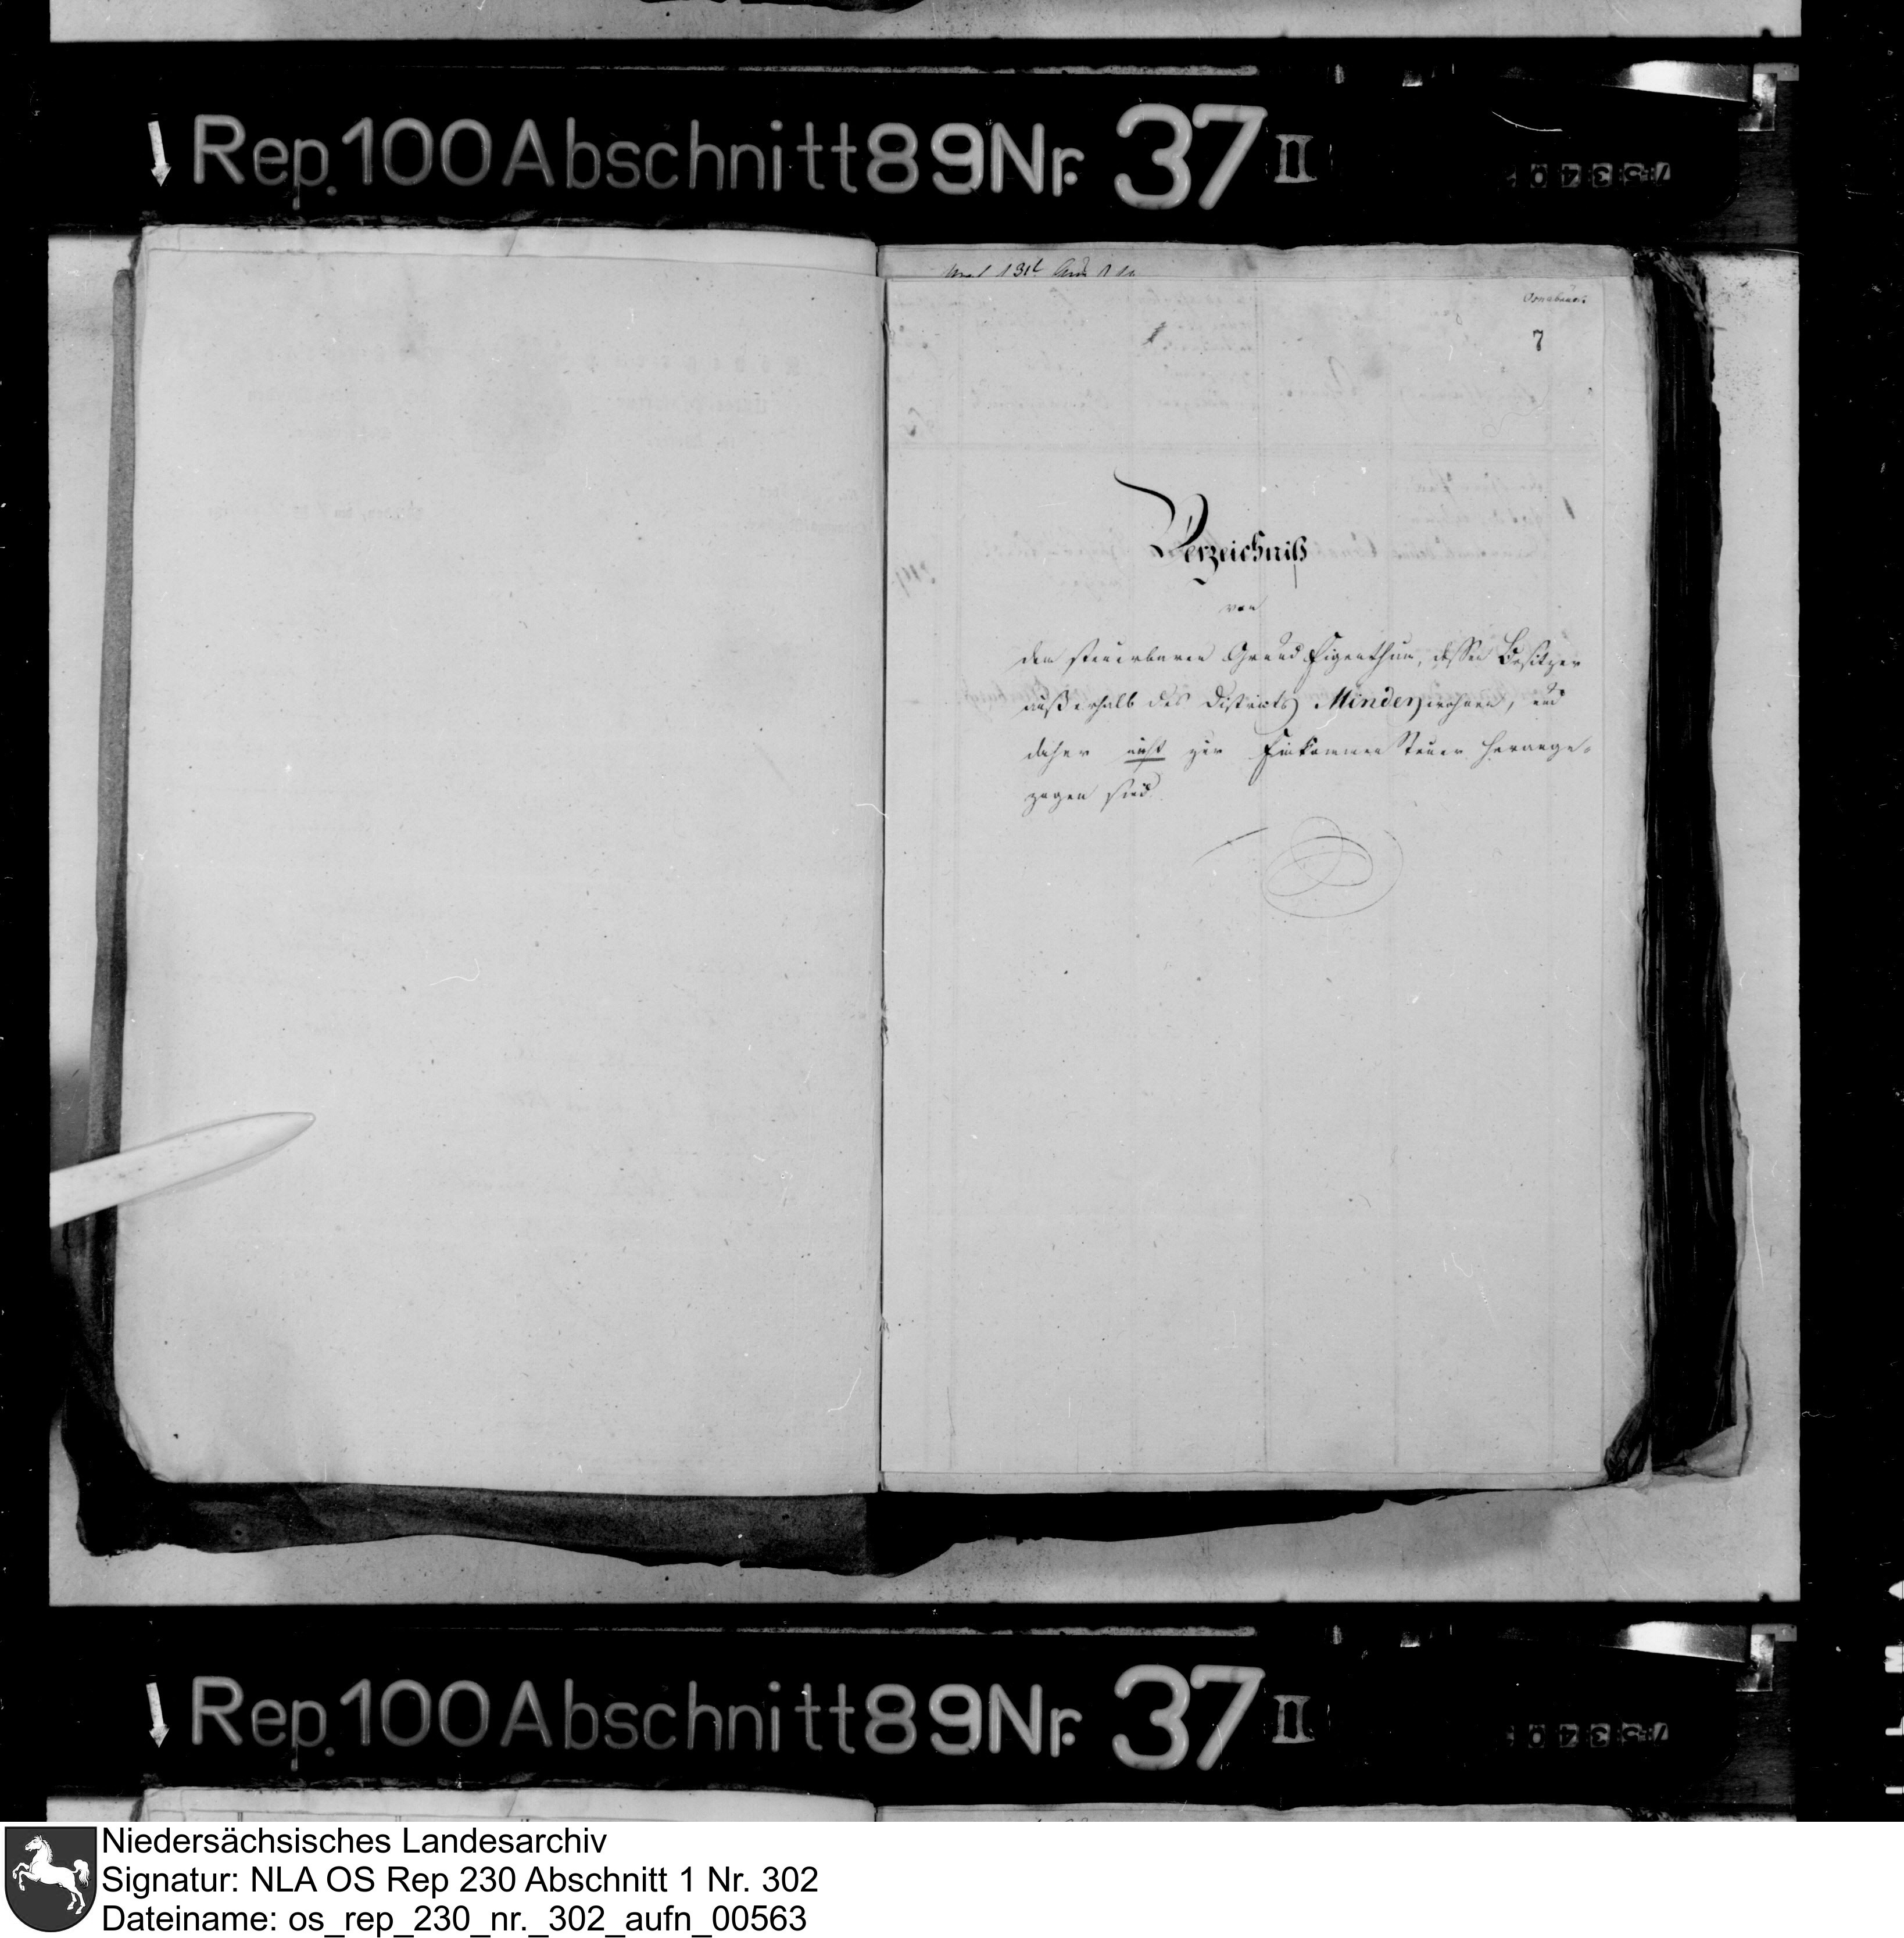 Rep. 100 Abschnitt 89 Nr. 37 II
Osnabrück
7
Verzeichniß
von
dem steuerbaren Grund Eigenthum, dessen Besitzer
außerhalb des Districts Minden wohnen, und
daher nicht zur Einkommen Steuer herange-
zogen sind.
Rep. 100 Abschnitt 89 Nr. 37 II
Niedersächsisches Landesarchiv
Signatur: NLA OS Rep 230 Abschnitt 1 Nr. 302
Dateiname: os_rep_230_nr._302_aufn_00563